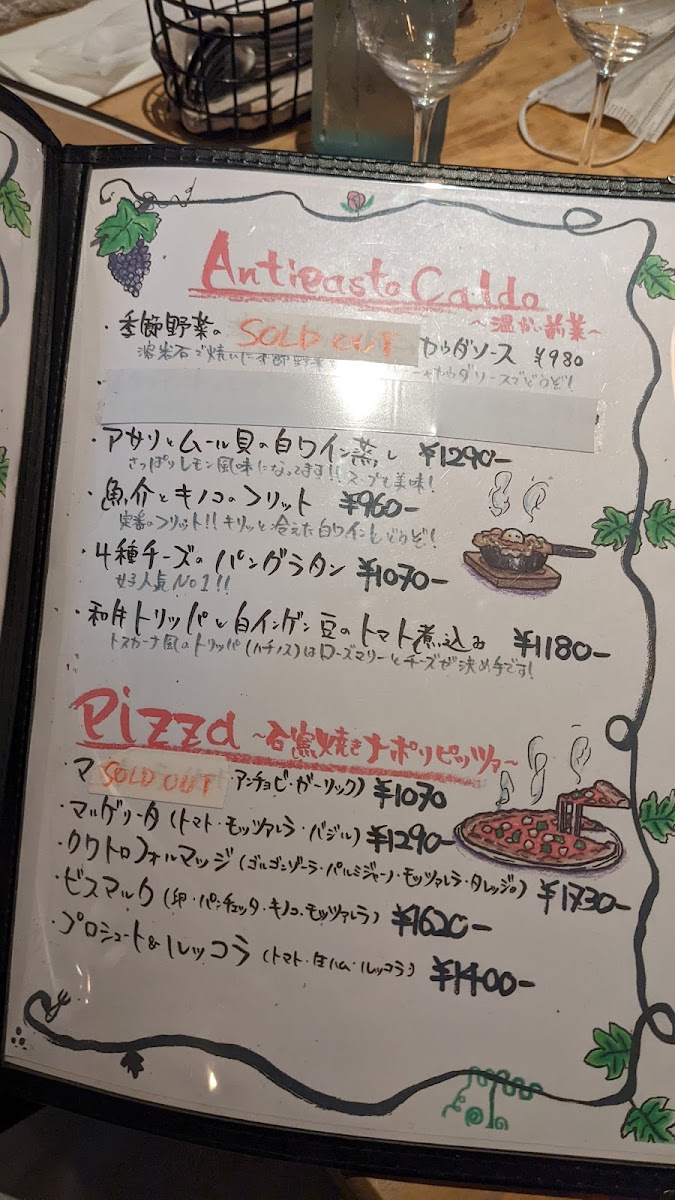 Antipasto Caldo
~温かい前菜~
・季節野菜の SOLD OUT カウダソース ¥980
溶岩石で焼いた季節野菜を カウダソースでどうぞ!
・アサリとムール貝の白ワイン蒸し ¥1290-
さっぱりレモン風味になってます!! スープも美味!
・魚介とキノコのフリット ¥960-
定番のフリット!! キリッと冷えた白ワインとどうぞ!
・4種チーズのパングラタン ¥1070-
女子人気No1!!
・和牛トリッパと白インゲン豆のトマト煮込み ¥1180-
トスカーナ風のトリッパ(ハチノス)はローズマリーとチーズが決め手です!
Pizza ~石窯焼きナポリピッツァ~
・マ SOLD OUT ・アンチョビ・ガーリック) ¥1070
・マルゲリータ (トマト・モッツァレラ・バジル) ¥1290-
・クワトロフォルマッジ (ゴルゴンゾーラ・パルミジャーノ・モッツァレラ・タレッジョ) ¥1730-
・ビスマルク (卵・パンチェッタ・キノコ・モッツァレラ) ¥1620-
・プロシュート&ルッコラ (トマト・生ハム・ルッコラ) ¥1400-